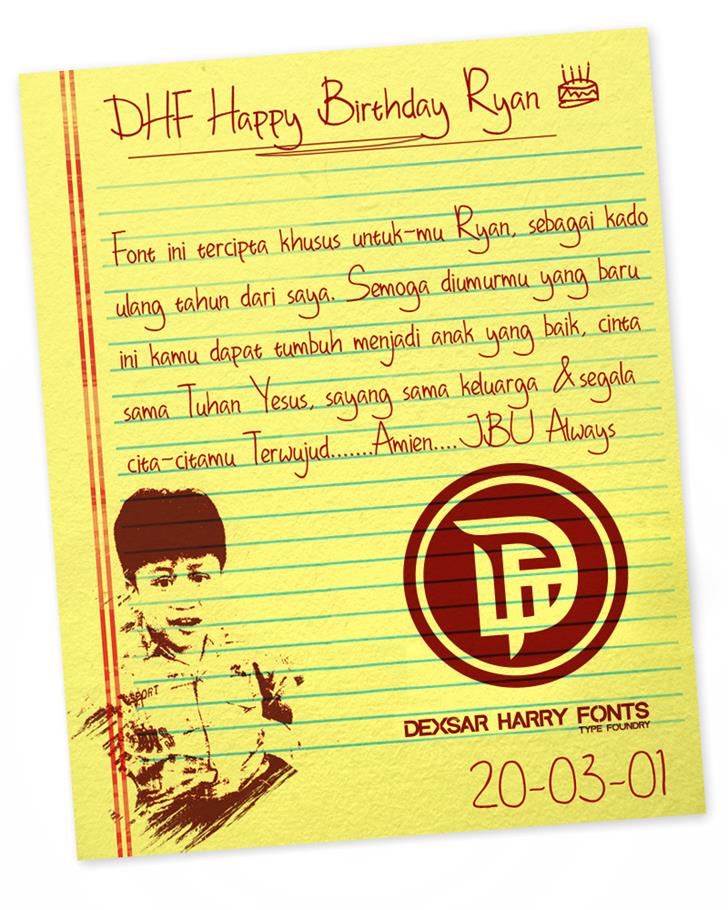 DHF Happy Birthday Ryan
Font ini tercipta khusus untuk-mu Ryan, sebagai kado
ulang tahun dari saya. Semoga diumurmu yang baru
ini kamu dapat tumbuh menjadi anak yang baik, cinta
sama Tuhan Yesus, sayang sama keluarga & segala
cita-citamu Terwujud.......Amien....JBU Always
SPORT
DEXSAR HARRY FONTS
TYPE FOUNDRY
20-03-01